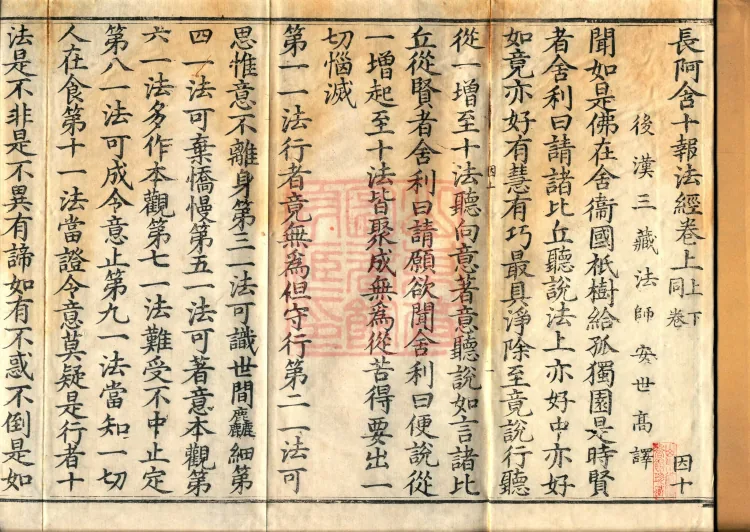 長阿含十報法經卷上 上下同卷 因十
後漢三藏法師安世高譯
聞如是佛在舍衞國祇樹給孤獨園是時賢
者舍利曰請諸比丘聽說法上亦好中亦好
如竟亦好有慧有巧最具淨除至竟說行聽
從一增至十法聽向意著意聽說如言諸比
丘從賢者舍利曰請願欲聞舍利曰便說從
一增起至十法皆聚成無為從苦得要出一
切惱滅
第一一法行者竟無為但守行第二一法可
思惟意不離身第三一法可識世間麤細第
四一法可棄憍慢第五一法可著意本觀第
六一法多作本觀第七一法難受不中止定
第八一法可成令意止第九一法當知一切
人在食第十一法當證令意莫疑是行者十
法是不非是不異有諦如有不惑不倒是如
因十